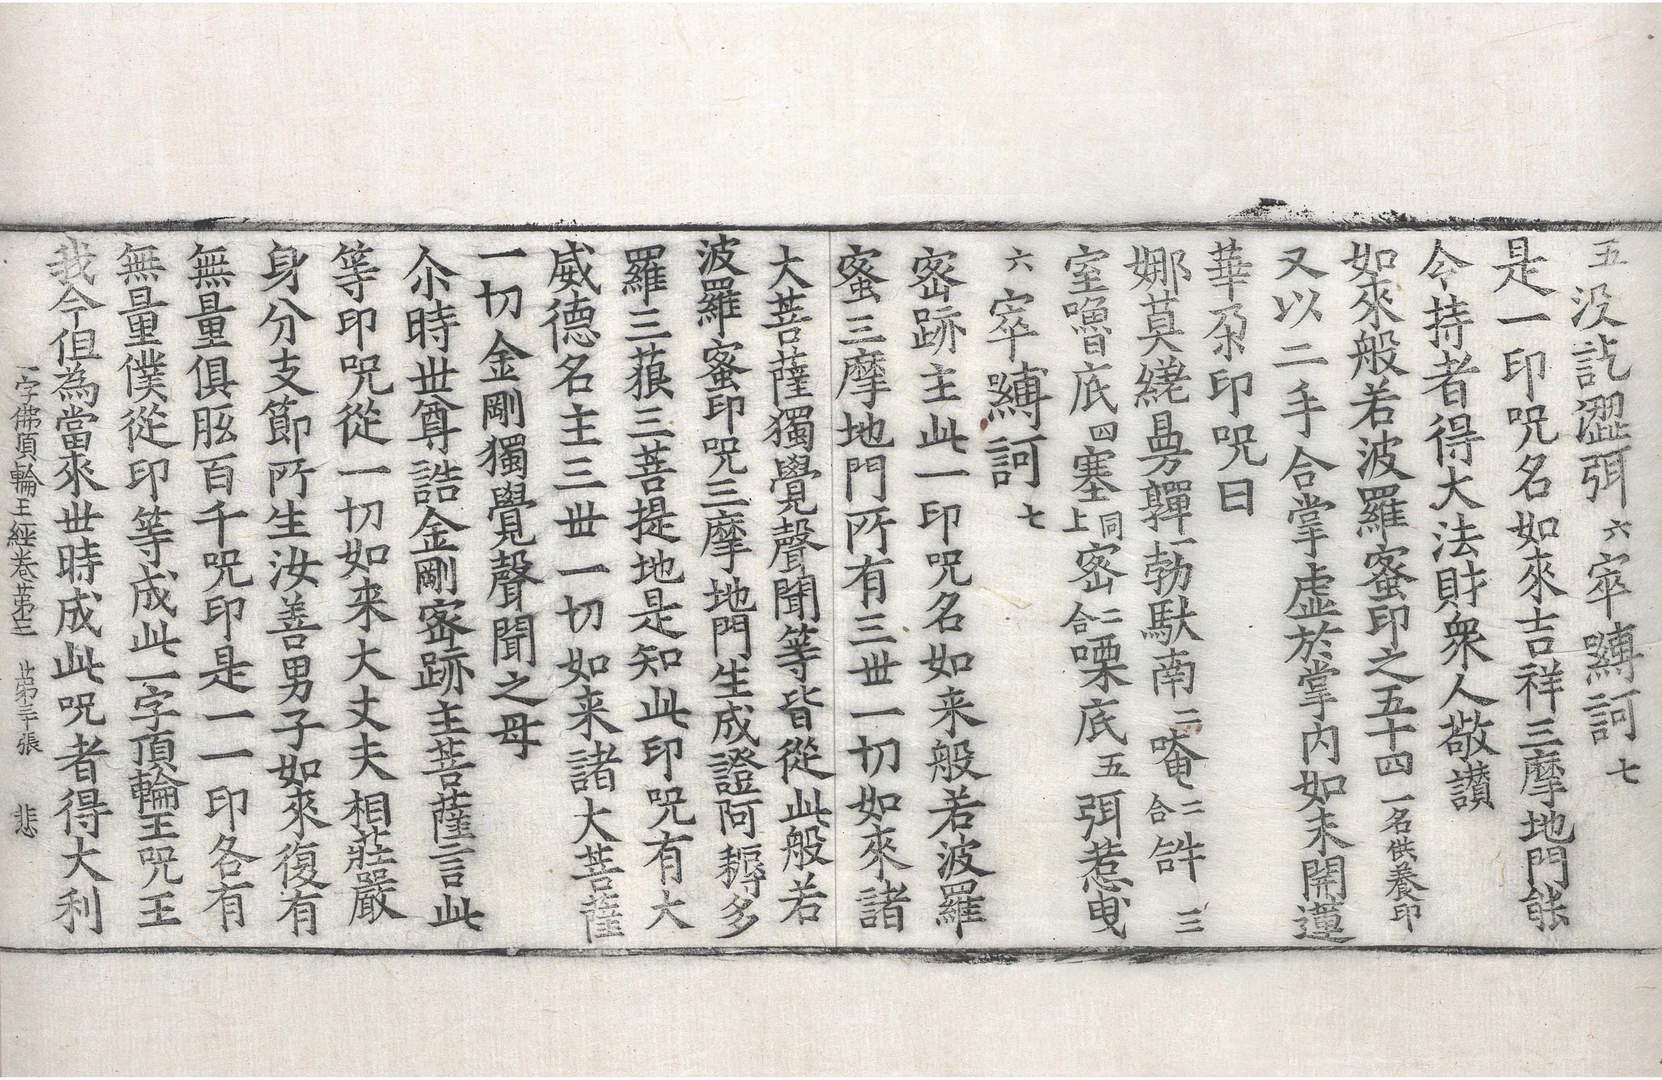 五没訖澀弭六窣嚩訶七
是一印呪名如來吉祥三摩地門能
令持者得大法財衆人敬讃
如來般若波羅蜜印之五十四一名供養印
又以二手合掌虛於掌内如未開蓮
華朶印呪曰
娜莫繞曷旁韗一勃馱南二唵二合𤙖三
室嚕底四塞同上窣二合㗚底五弭惹曳
六窣嚩訶七
密跡主此一印呪名如来般若波羅
蜜三摩地門所有三世一切如來諸
大菩薩獨覺聲聞等皆從此般若
波羅蜜印呪三摩地門生成證阿耨多
羅三藐三菩提地是知此印呪有大
威德名主三世一切如来諸大菩薩
一切金剛獨覺聲聞之母
尒時世尊誥金剛密跡主菩薩言此
等印呪從一切如来大丈夫相莊嚴
身分支節所生汝善男子如來復有
無量俱胝百千呪印是一一印各有
無量僕從印等成此一字頂輪王呪王
我今但為當來世時成此呪者得大利
一字佛頂輪王經卷第三 第三張 悲